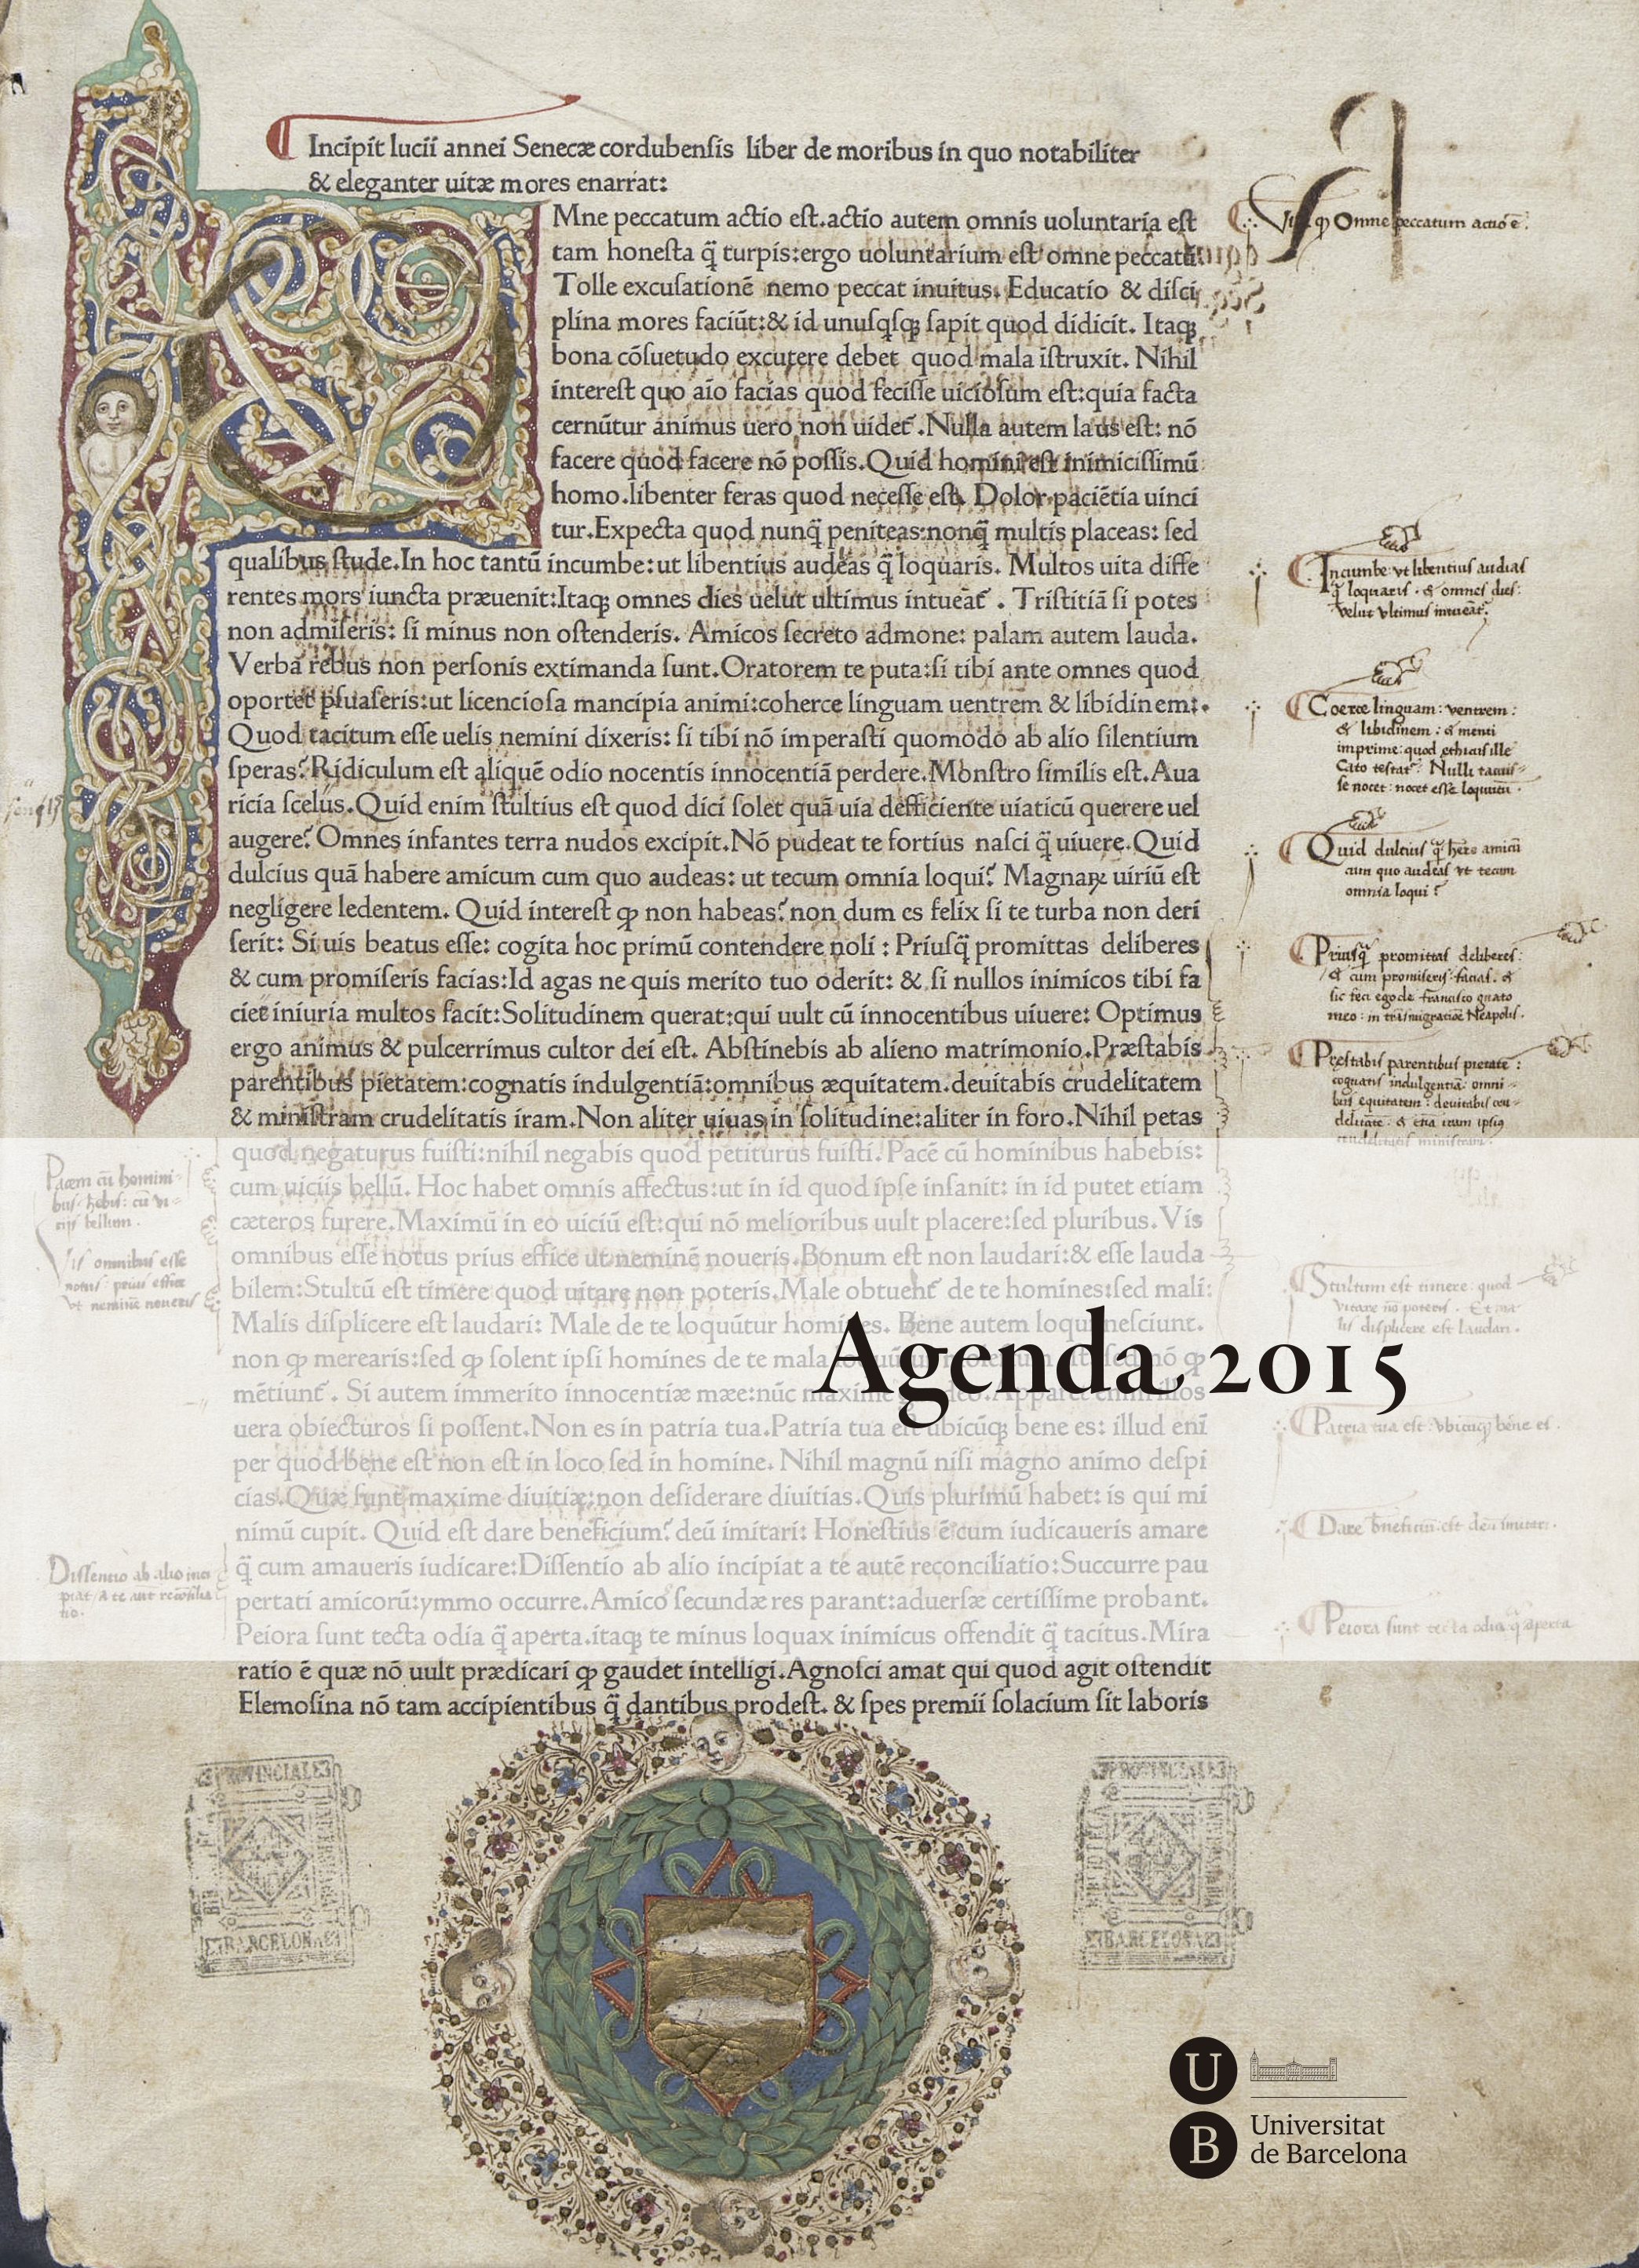 Incipit lucii annei Senecæ cordubenſis liber de moribus in quo notabiliter
& eleganter uitæ mores enarrat:
Mne peccatum actio eſt.actio autem omnis uoluntaria eſt
tam honeſta q̃ turpis:ergo uoluntarium eſt omne peccatū
Tolle excuſationē nemo peccat inuitus. Educatio & diſci
plina mores faciūt:& id unuſqſqꝫ ſapit quod didicit. Itaqꝫ
bona cōſuetudo excutere debet quod mala iſtruxit. Nihil
intereſt quo aīo facias quod feciſſe uicioſum eſt:quia facta
cernūtur animus uero non uidet̄ .Nulla autem laus eſt: nō
facere quod facere nō poſſis.Quid homini eſt inimiciſſimū
homo.libenter feras quod neceſſe eſt. Dolor paciētia uinci
tur.Expecta quod nunq̃ peniteas:nonq̃ multis placeas: ſed
qualibus ſtude.In hoc tantū incumbe:ut libentius audeas q̃ loquaris. Multos uita diffe
rentes mors iuncta præuenit:Itaqꝫ omnes dies uelut ultimus intueat̄ . Triſtitiā ſi potes
non admiſeris: ſi minus non oſtenderis. Amicos ſecreto admone: palam autem lauda.
Verba rebus non perſonis extimanda ſunt.Oratorem te puta:ſi tibi ante omnes quod
oportet pſuaſeris:ut licencioſa mancipia animi:coherce linguam uentrem & libidinem:
Quod tacitum eſſe uelis nemini dixeris: ſi tibi nō imperaſti quomodo ab alio ſilentium
ſperas? Ridiculum eſt aliquē odio nocentis innocentiā perdere.Monſtro ſimilis eſt.Aua
ricia ſcelus.Quid enim ſtultius eſt quod dici ſolet quā uia deficiente uiaticū querere uel
augere? Omnes infantes terra nudos excipit.Nō pudeat te fortius naſci q̃ uiuere.Quid
dulcius quā habere amicum cum quo audeas: ut tecum omnia loqui? Magnaꝝ uiriū eſt
negligere ledentem. Quid intereſt ꝙ non habeas? non dum es felix ſi te turba non deri
ſerit: Si uis beatus eſſe: cogita hoc primū contendere noli : Priuſq̃ promittas deliberes
& cum promiſeris facias:Id agas ne quis merito tuo oderit: & ſi nullos inimicos tibi fa
ciet iniuria multos facit:Solitudinem querat:qui uult cū innocentibus uiuere: Optimus
ergo animus & pulcerrimus cultor dei eſt. Abſtinebis ab alieno matrimonio.Præſtabis
parentibus pietatem:cognatis indulgentiā:omnibus æquitatem.deuitabis crudelitatem
& miniſtram crudelitatis iram.Non aliter uiuas in ſolitudine:aliter in foro.Nihil petas
quod negaturus fuiſti:nihil negabis quod petiturus fuiſti. Pacē cū hominibus habebis:
cum uiciis bellū. Hoc habet omnis affectus:ut in id quod ipſe inſanit: in id putet etiam
cæteros furere.Maximū in eo uiciū eſt:qui nō melioribus uult placere:ſed pluribus.Vis
omnibus eſſe notus prius effice ut neminē noueris.Bonum eſt non laudari:& eſſe lauda
bilem:Stultū eſt timere quod uitare non poteris.Male obtuent̄ de te homines:ſed mali:
Malis diſplicere eſt laudari: Male de te loquūtur homines. Bene autem loqui neſciunt.
non ꝙ merearis:ſed ꝙ ſolent ipſi homines de te mala
mētiunt̄ . Si autem immerito innocentiæ mææ:nūc
uera obiecturos ſi poſſent.Non es in patria tua.Patria tua eſt ubicūqꝫ bene es: illud enī
per quod bene eſt non eſt in loco ſed in homine. Nihil magnū niſi magno animo deſpi
cias.Quæ ſunt maxime diuitiæ:non deſiderare diuitias.Quis plurimū habet: is qui mi
nimū cupit. Quid eſt dare beneficium? deū imitari: Honeſtius ē cum iudicaueris amare
q̃ cum amaueris iudicare:Diſſentio ab alio incipiat a te autē reconciliatio:Succurre pau
pertati amicorū:ymmo occurre.Amico ſecundæ res parant:aduerſæ certiſſime probant.
Peiora ſunt tecta odia q̃ aperta.itaqꝫ te minus loquax inimicus offendit q̃ tacitus.Mira
ratio ē quæ nō uult prædicari ꝙ gaudet intelligi.Agnoſci amat qui quod agit oſtendit
Elemoſina nō tam accipientibus q̃ dantibus prodeſt. & ſpes premii ſolacium ſit laboris
Omne peccatum actio ē.
Incumbe vt libentius audias
q̃ loquaris . & omnes dies:
velut vltimus intueat̄.
Coerce linguam: ventrem:
& libidinem : & menti
imprime: quod ethicus ille
Cato testat̄: Nulli tacuis-
se nocet: nocet esse loquutū .
Quid dulcius q̃ hēre amicū
cum quo audeas vt tecum
omnia loqui?
Priusq̃ promittas deliberes:
& cum promiseris facias. &
sic feci ego de francisco gnato
meo: in trāsmigratiōe Neapolis.
Prestabis parentibus pietatē:
cognatis indulgentiā: omni-
bus equitatem: deuitabis cru-
delitatē. & etiā iram ipsiꝰ
crudelitatis ministram.
Pacem cū homini-
bus hēbis: cū vi-
cijs bellum.
Vis omnibus esse
notus: prius effice
vt neminē noueris
Stultum est timere quod
vitare nō poteris. Et ma
lis displicere est laudari.
Agenda 2015
Patria tua est vbicūqꝫ bene es.
Dare bn̄ficiū: est deū imitari.
Dissentio ab alio inci
piat / a te aut reconcilia
tio.
Peiora sunt tecta odia q̃ aperta
PROVINCIAL
BARCELONA
BIBLIOTECA
PROVINCIAL
BARCELONA
U
B
Universitat
de Barcelona